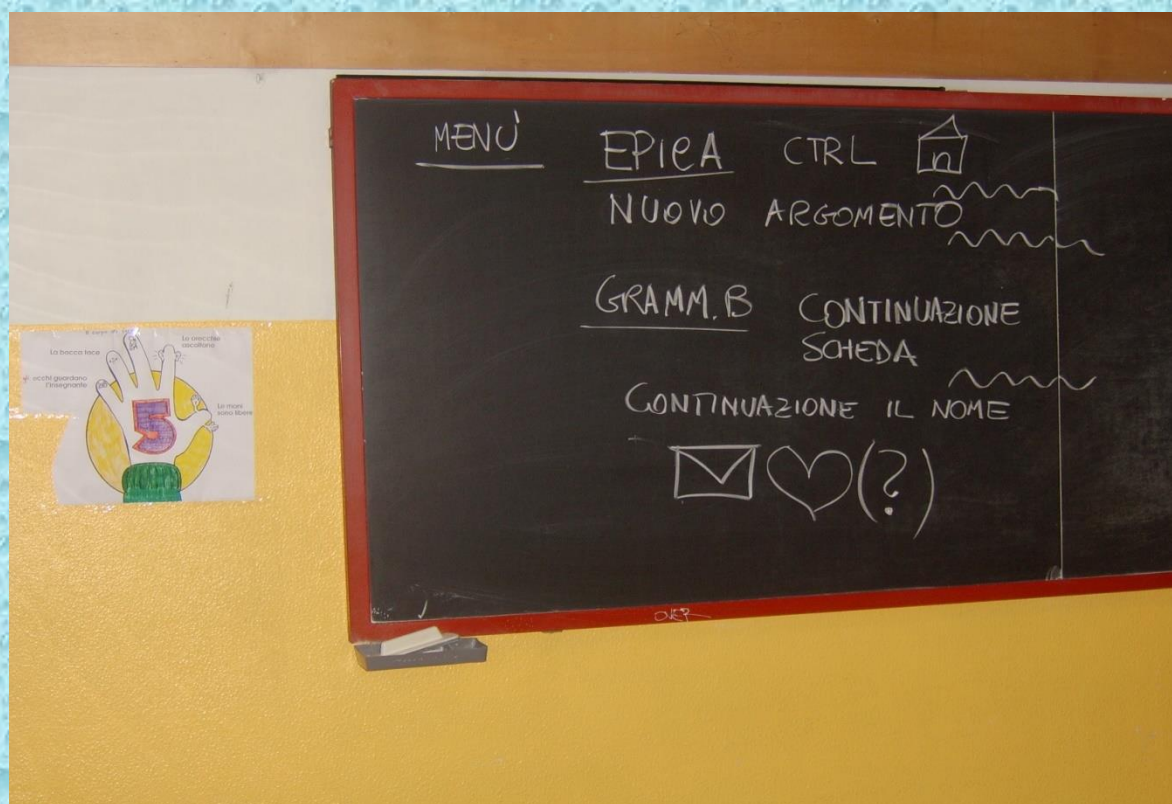 MENÙ
EPICA CTRL
NUOVO ARGOMENTO
GRAMM. B CONTINUAZIONE
SCHEDA
CONTINUAZIONE IL NOME
(?)
OVER
La bocca tace
Le orecchie
ascoltano
occhi guardano
l'insegnante
Le mani
sono libere
5